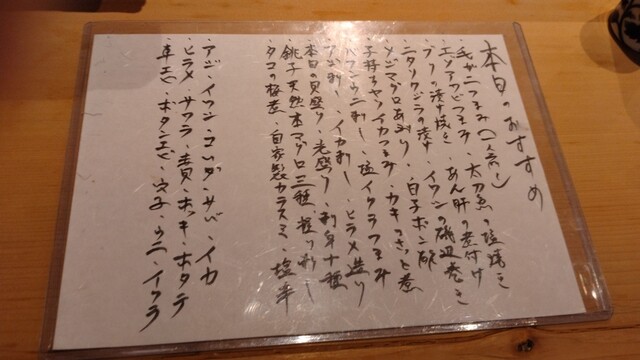 本日のおすすめ
・毛ガニつまみ(一人前〜)・太刀魚の塩焼き
・エゾアワビつまみ・あん肝の煮付け
・ブリの漬け炙き・イワシの磯辺巻き
・ニタリクジラの漬け・白子ポン酢
・メジマグロあぶり・カキのさっと煮
・子持ちヤリイカつまみ
・バフンウニ刺し・塩イクラつまみ
・アジ刺し・イカ刺し・ヒラメ造り
・本日の貝盛り・光盛り・刺身十種
・銚子天然本マグロ三種握り、刺し
・タコの桜煮・自家製カラスミ・塩辛
・アジ・イワシ・コハダ・サバ・イカ
・ヒラメ・サワラ・赤貝・ホッキ・ホタテ
・車エビ・ボタンエビ・穴子・ウニ・イクラ